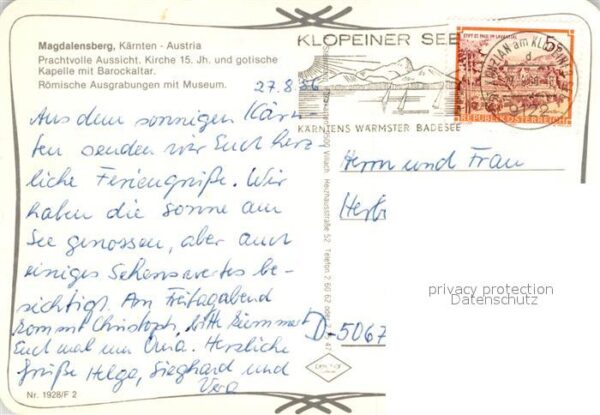 Magdalensberg, Kärnten - Austria
Prachtvolle Aussicht. Kirche 15. Jh. und gotische
Kapelle mit Barockaltar.
Römische Ausgrabungen mit Museum.
27.8.86
Aus dem sonnigen Kärn-
ten senden wir Euch herz-
liche Feriengrüße. Wir
haben die Sonne am
See genossen, aber auch
einiges Sehenswertes be-
sichtigt. Am Freitagabend
kommt Christoph, bitte kümmert
Euch mal um Oma. Herzliche
Grüße Helga, Sieghard und
Vera
Nr. 1928/F 2
KLOPEINER SEE
KÄRNTENS WÄRMSTER BADESEE
5S
REPUBLIK ÖSTERREICH
KANZIAN am KLOPEIN
9500 Villach Heizhausstraße 52 Telefon 2 60 62
Herrn und Frau
Herb
D-5067
privacy protection
Datenschutz